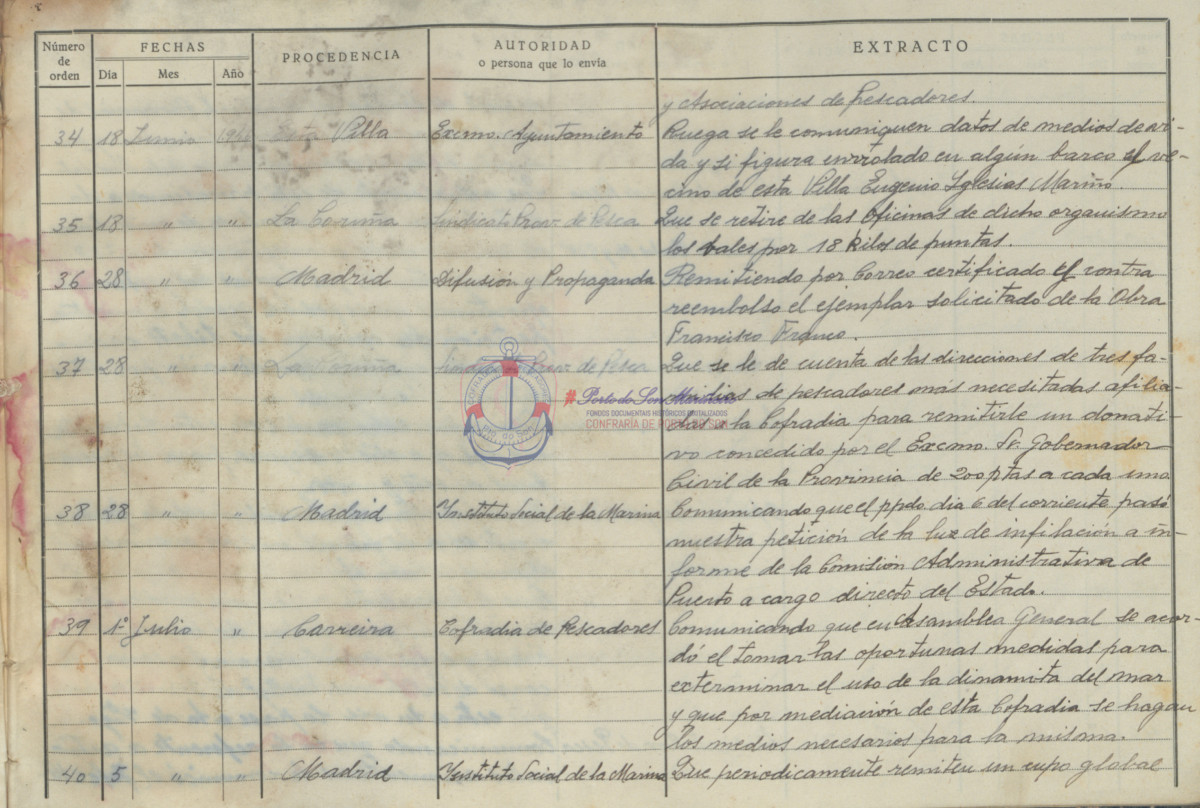 Número de orden FECHAS PROCEDENCIA AUTORIDAD o persona que lo envía EXTRACTO
Día Mes Año
y Asociaciones de Pescadores.
34 18 Junio Esta Villa Excmo. Ayuntamiento Ruega se le comuniquen datos de medios de vi-
da y si figura enrrolado en algún barco el ve-
cino de esta Villa Eugenio Iglesias Mariño.
35 18 " " La Coruña Sindicato Prov. de Pesca Que se retire de las Oficinas de dicho organismo
los vales por 18 Kilos de puntas.
36 28 " " Madrid Difusión y Propaganda Remitiendo por Correo certificado y contra
reembolso el ejemplar solicitado de la Obra
Francisco Franco.
37 28 " " La Coruña Sindicato Prov. de Pesca Que se le de cuenta de las direcciones de tres fa-
milias de pescadores más necesitadas afilia-
das a la Cofradia para remitirle un donati-
vo concedido por el Excmo. Sr. Gobernador
Civil de la Provincia de 200 ptas a cada uno.
38 28 " " Madrid Instituto Social de la Marina Comunicando que el ppdo. dia 6 del corriente pasó
nuestra petición de la luz de infilación a in-
forme de la Comisión Administrativa de
Puerto a cargo directo del Estado.
39 1º Julio " Carreira Cofradia de Pescadores Comunicando que en Asamblea General se acor-
dó el tomar las oportunas medidas para
exterminar el uso de la dinamita del mar
y que por mediación de esta Cofradia se hagan
los medios necesarios para la misma.
40 5 " " Madrid Instituto Social de la Marina Que periodicamente remiten un cupo global
#Porto do Son Marítimo
FONDOS DOCUMENTAIS HISTÓRICOS DIXITALIZADOS
CONFRARÍA DE PORTO DO SON